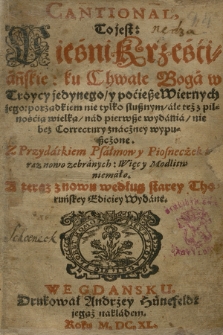 CANTIONAL
To jest:
Pieśni Krześci-
áńskie: ku Chwale Bogá w
Troycy jedynego/ y poćiesze Wiernych
jego: porządkiem nie tylko słusznym/ ále też z pil-
nośćią wielką/ nád pierwsze wydánia/ nie
bez Correctury znáczney wypu-
szczone.
Z Przydátkiem Psalmow y Piosneczek
raz nowo zebránych: Więc y Modlitw
niemáło.
A teraz znowu według stárey Tho-
ruńskey Ediciey Wydáne.
WE GDANSKU,
Drukował Andrzey Hünefeldt
jegoż nakłádem.
Roku M. DC. XL.